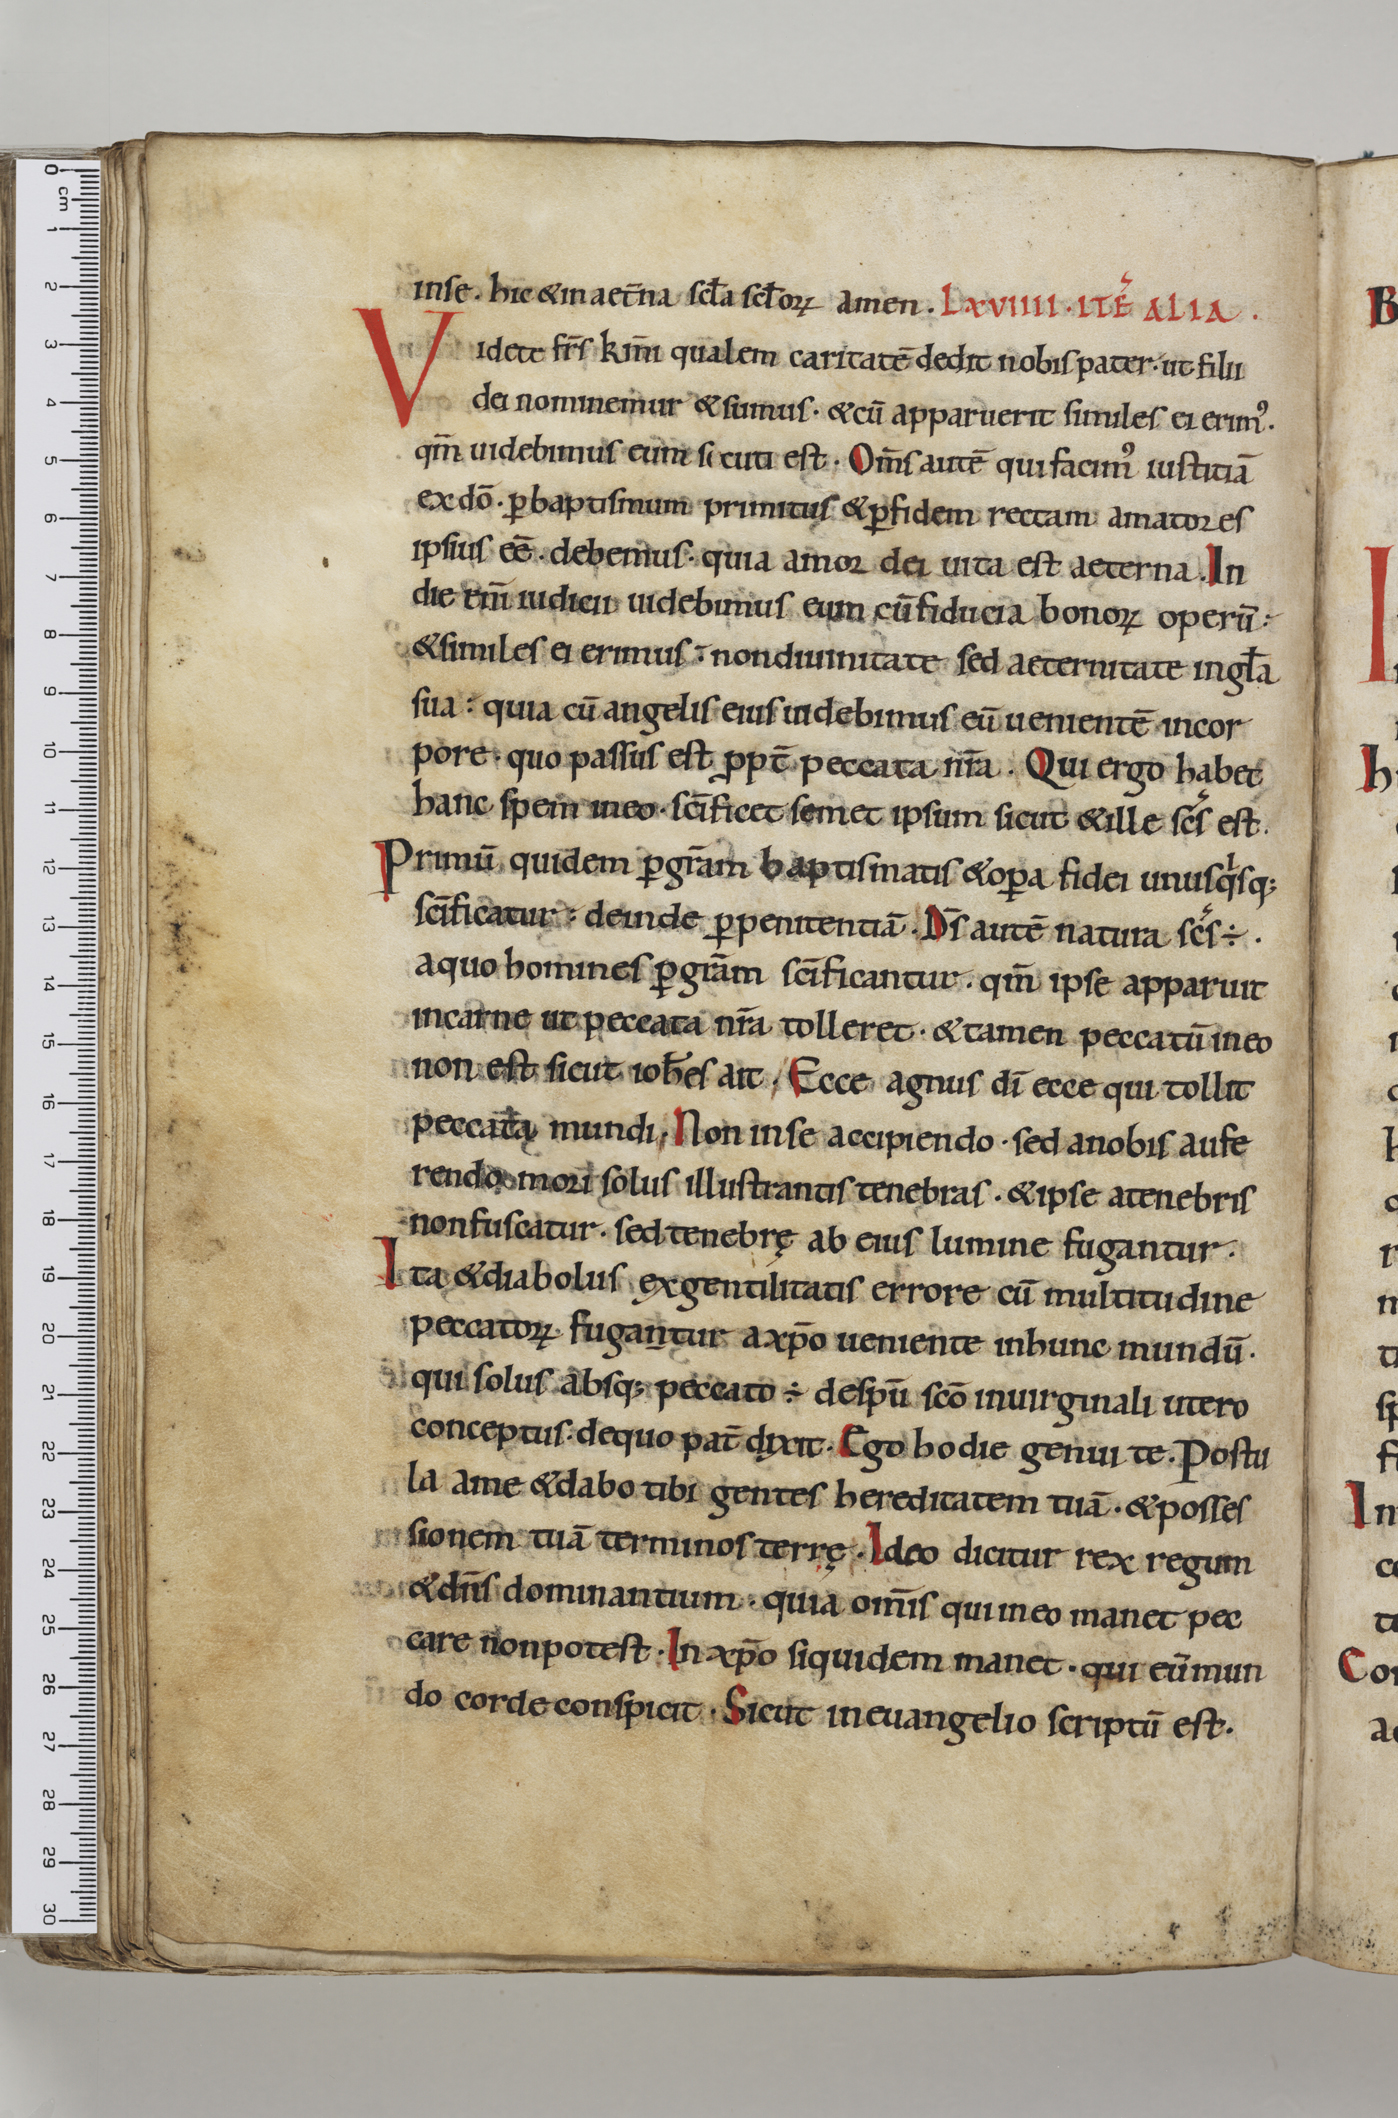 inse. hic & in aet̄na scl̄a scl̄oꝝ amen. LXVIIII. ITĒ ALIA.
Videte fr̄s kīmi qualem caritatē dedit nobis pater. ut filii
dei nominemur & sumus. & cū apparuerit similes ei erimꝰ.
qm̄ uidebimus eum sicuti est. Om̄s autē qui facimꝰ iustitiā
ex dō. ꝑ baptismum primitus & ꝑ fidem rectam amatores
ipsius eē. debemus. quia amor dei uita est aeterna. In
die em̄ iudicii uidebimus eum cū fiducia bonoꝝ operū:
& similes ei erimus: non diuinitate sed aeternitate in gl̄a
sua: quia cū angelis eius uidebimus eū uenientē in cor
pore. quo passus est ꝓpt̄ peccata nr̄a. Qui ergo habet
hanc spem in eo. scīficet semet ipsum sicut & ille scs̄ est.
Primū quidem ꝑ gr̄am baptismatis & oꝑa fidei unusqͥsqꝫ
scīficatur: deinde ꝑ penitentiā. Ds̄ autē natura scs̄ ÷.
a quo homines ꝑ gr̄am scīficantur. qm̄ ipse apparuit
in carne ut peccata nr̄a tolleret. & tamen peccatū in eo
non est sicut ioh̄es ait. Ecce agnus dī ecce qui tollit
peccata mundi. Non in se accipiendo. sed a nobis aufe
rendo mori solus illustrantis tenebras. & ipse a tenebris
non fuscatur. sed tenebrę ab eius lumine fugantur.
Ita & diabolus ex gentilitatis errore cū multitudine
peccatoꝝ fugantur a xp̄o ueniente in hunc mundū.
qui solus absqꝫ peccato ÷ de spū scō in uirginali utero
conceptus. de quo pat̄ dixit. Ego hodie genui te. Postu
la a me & dabo tibi gentes hereditatem tuā. & posses
sionem tuā terminos terrę. Ideo dicitur rex regum
& dn̄s dominantium. quia om̄is qui in eo manet pec
care non potest. In xp̄o siquidem manet. qui eū mun
do corde conspicit. Sicut in euangelio scriptū est.